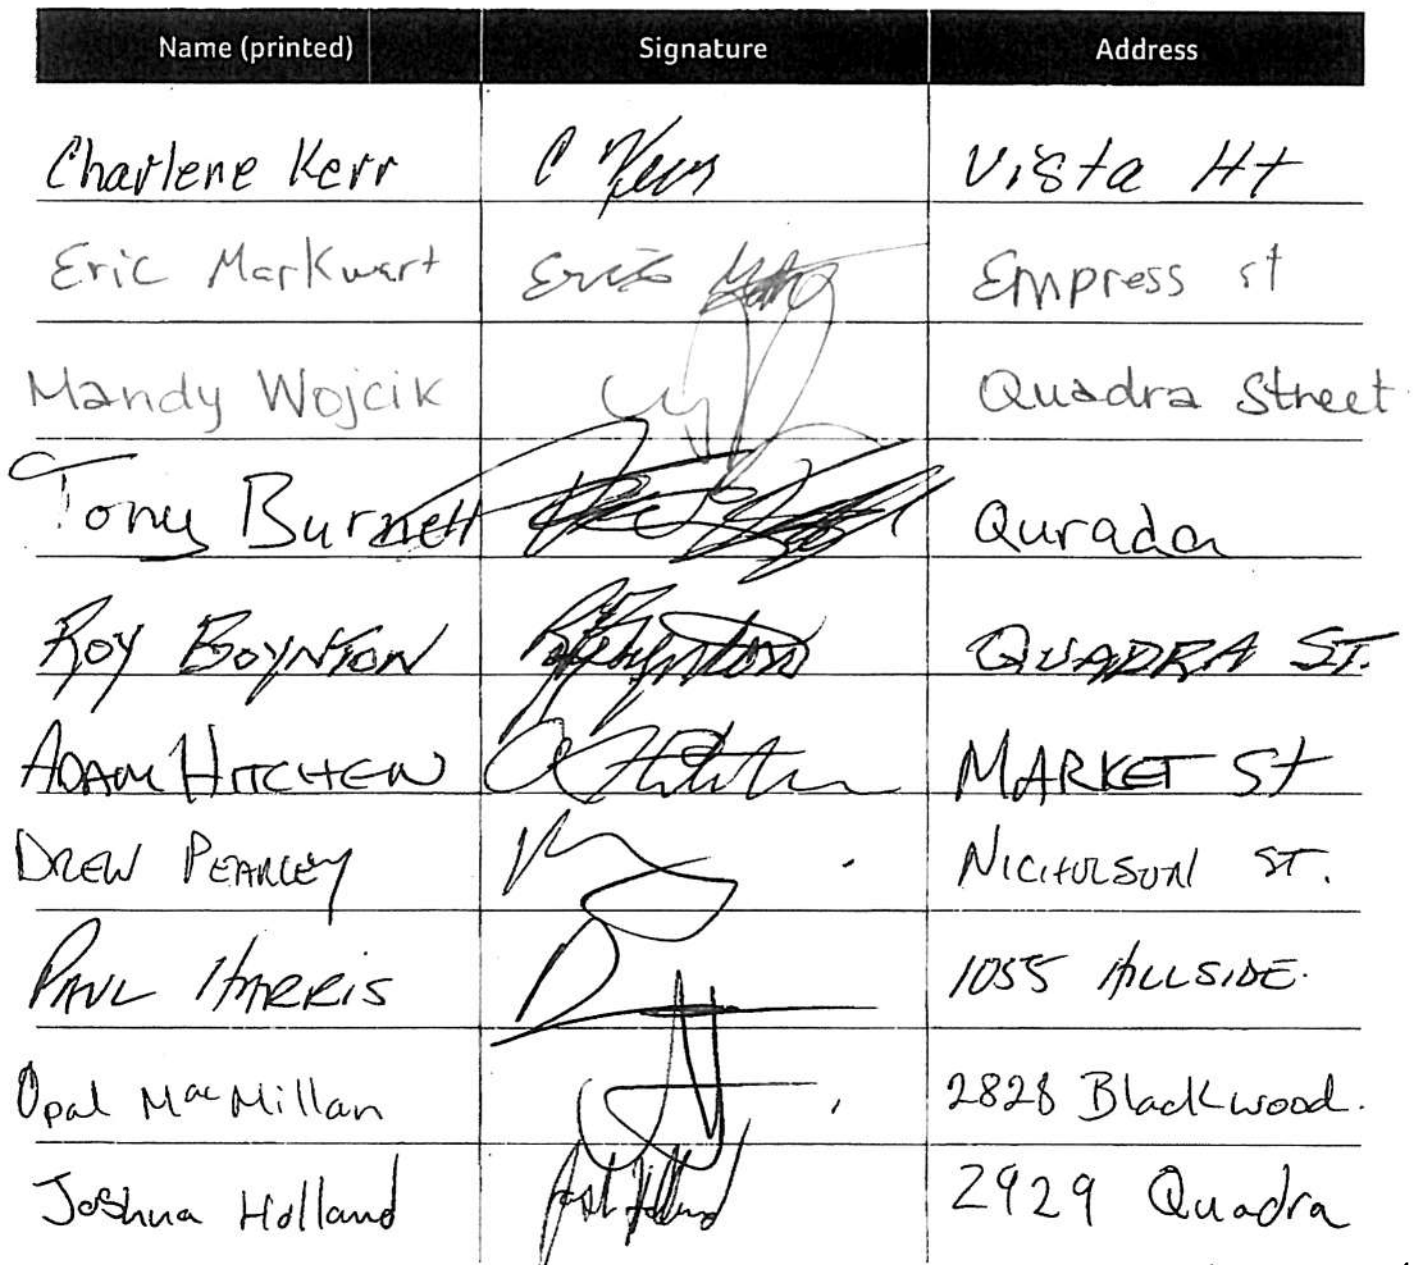 Name (printed) Signature Address
Charlene Kerr C Kerr Vista Ht
Eric Markwart Eric Empress st
Mandy Wojcik Quadra Street
Tony Burnett Qurada
ROY BOYNTON R Boynton QUADRA ST.
ADAM HITCHEN A Hitchen MARKET St
DREW PEARCEY NICHOLSON ST.
PAUL HARRIS 1055 HILLSIDE.
Opal MacMillan 2828 Blackwood.
Joshua Holland Josh Holland 2929 Quadra